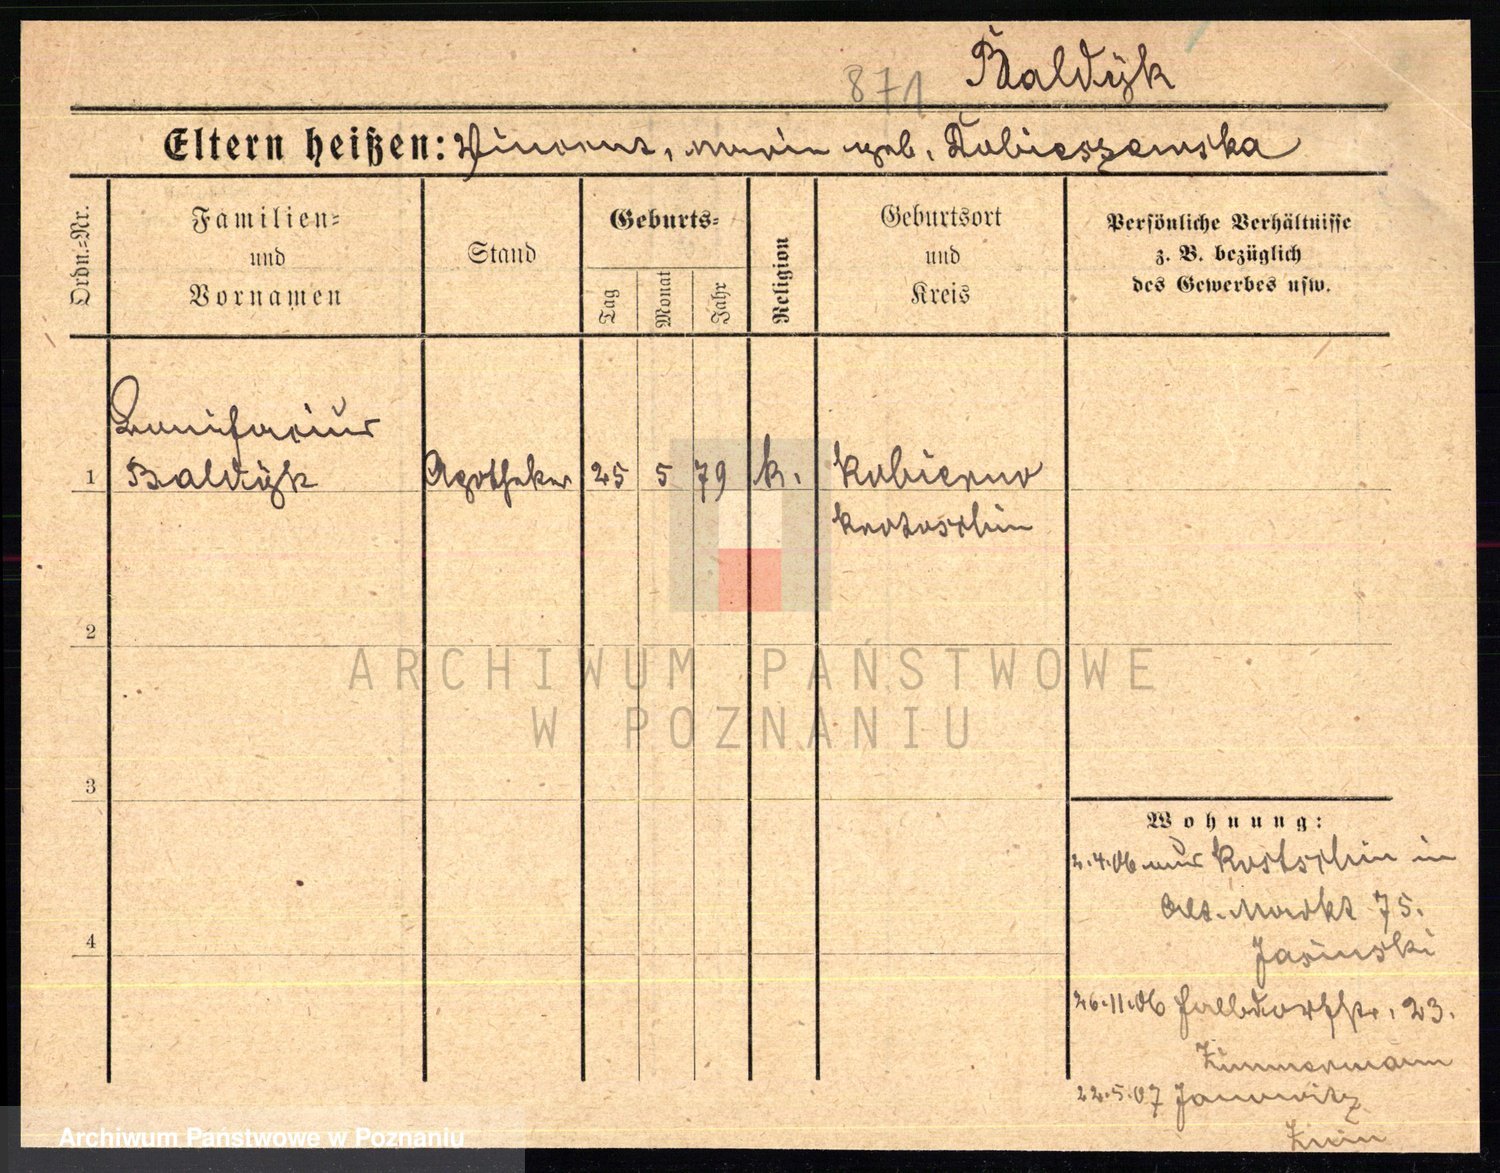 871 Baldÿk
Eltern heißen: Vincent, Marie geb. Kobieszewska
Ordn.-Nr.
Familien-
und
Vornamen
Stand
Geburts-
Tag
Monat
Jahr
Religion
Geburtsort
und
Kreis
Persönliche Verhältnisse
z. B. bezüglich
des Gewerbes usw.
Bonifacius
1 Baldÿk Apotheker 25 5 79 k. Kobierno
Krotoschin
2
ARCHIWUM PAŃSTWOWE
W POZNANIU
3
Wohnung:
2.4.06 aus Kostschin in
Alt. Markt 75.
Jasinski
4
26.11.06 Halbdorfstr. 23.
Zimmermann
22.5.07 Janowitz
Znin
Archiwum Państwowe w Poznaniu